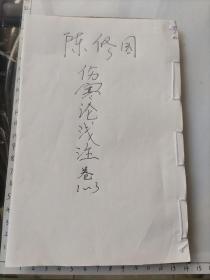 陈修园
伤寒论浅注
卷
1-3